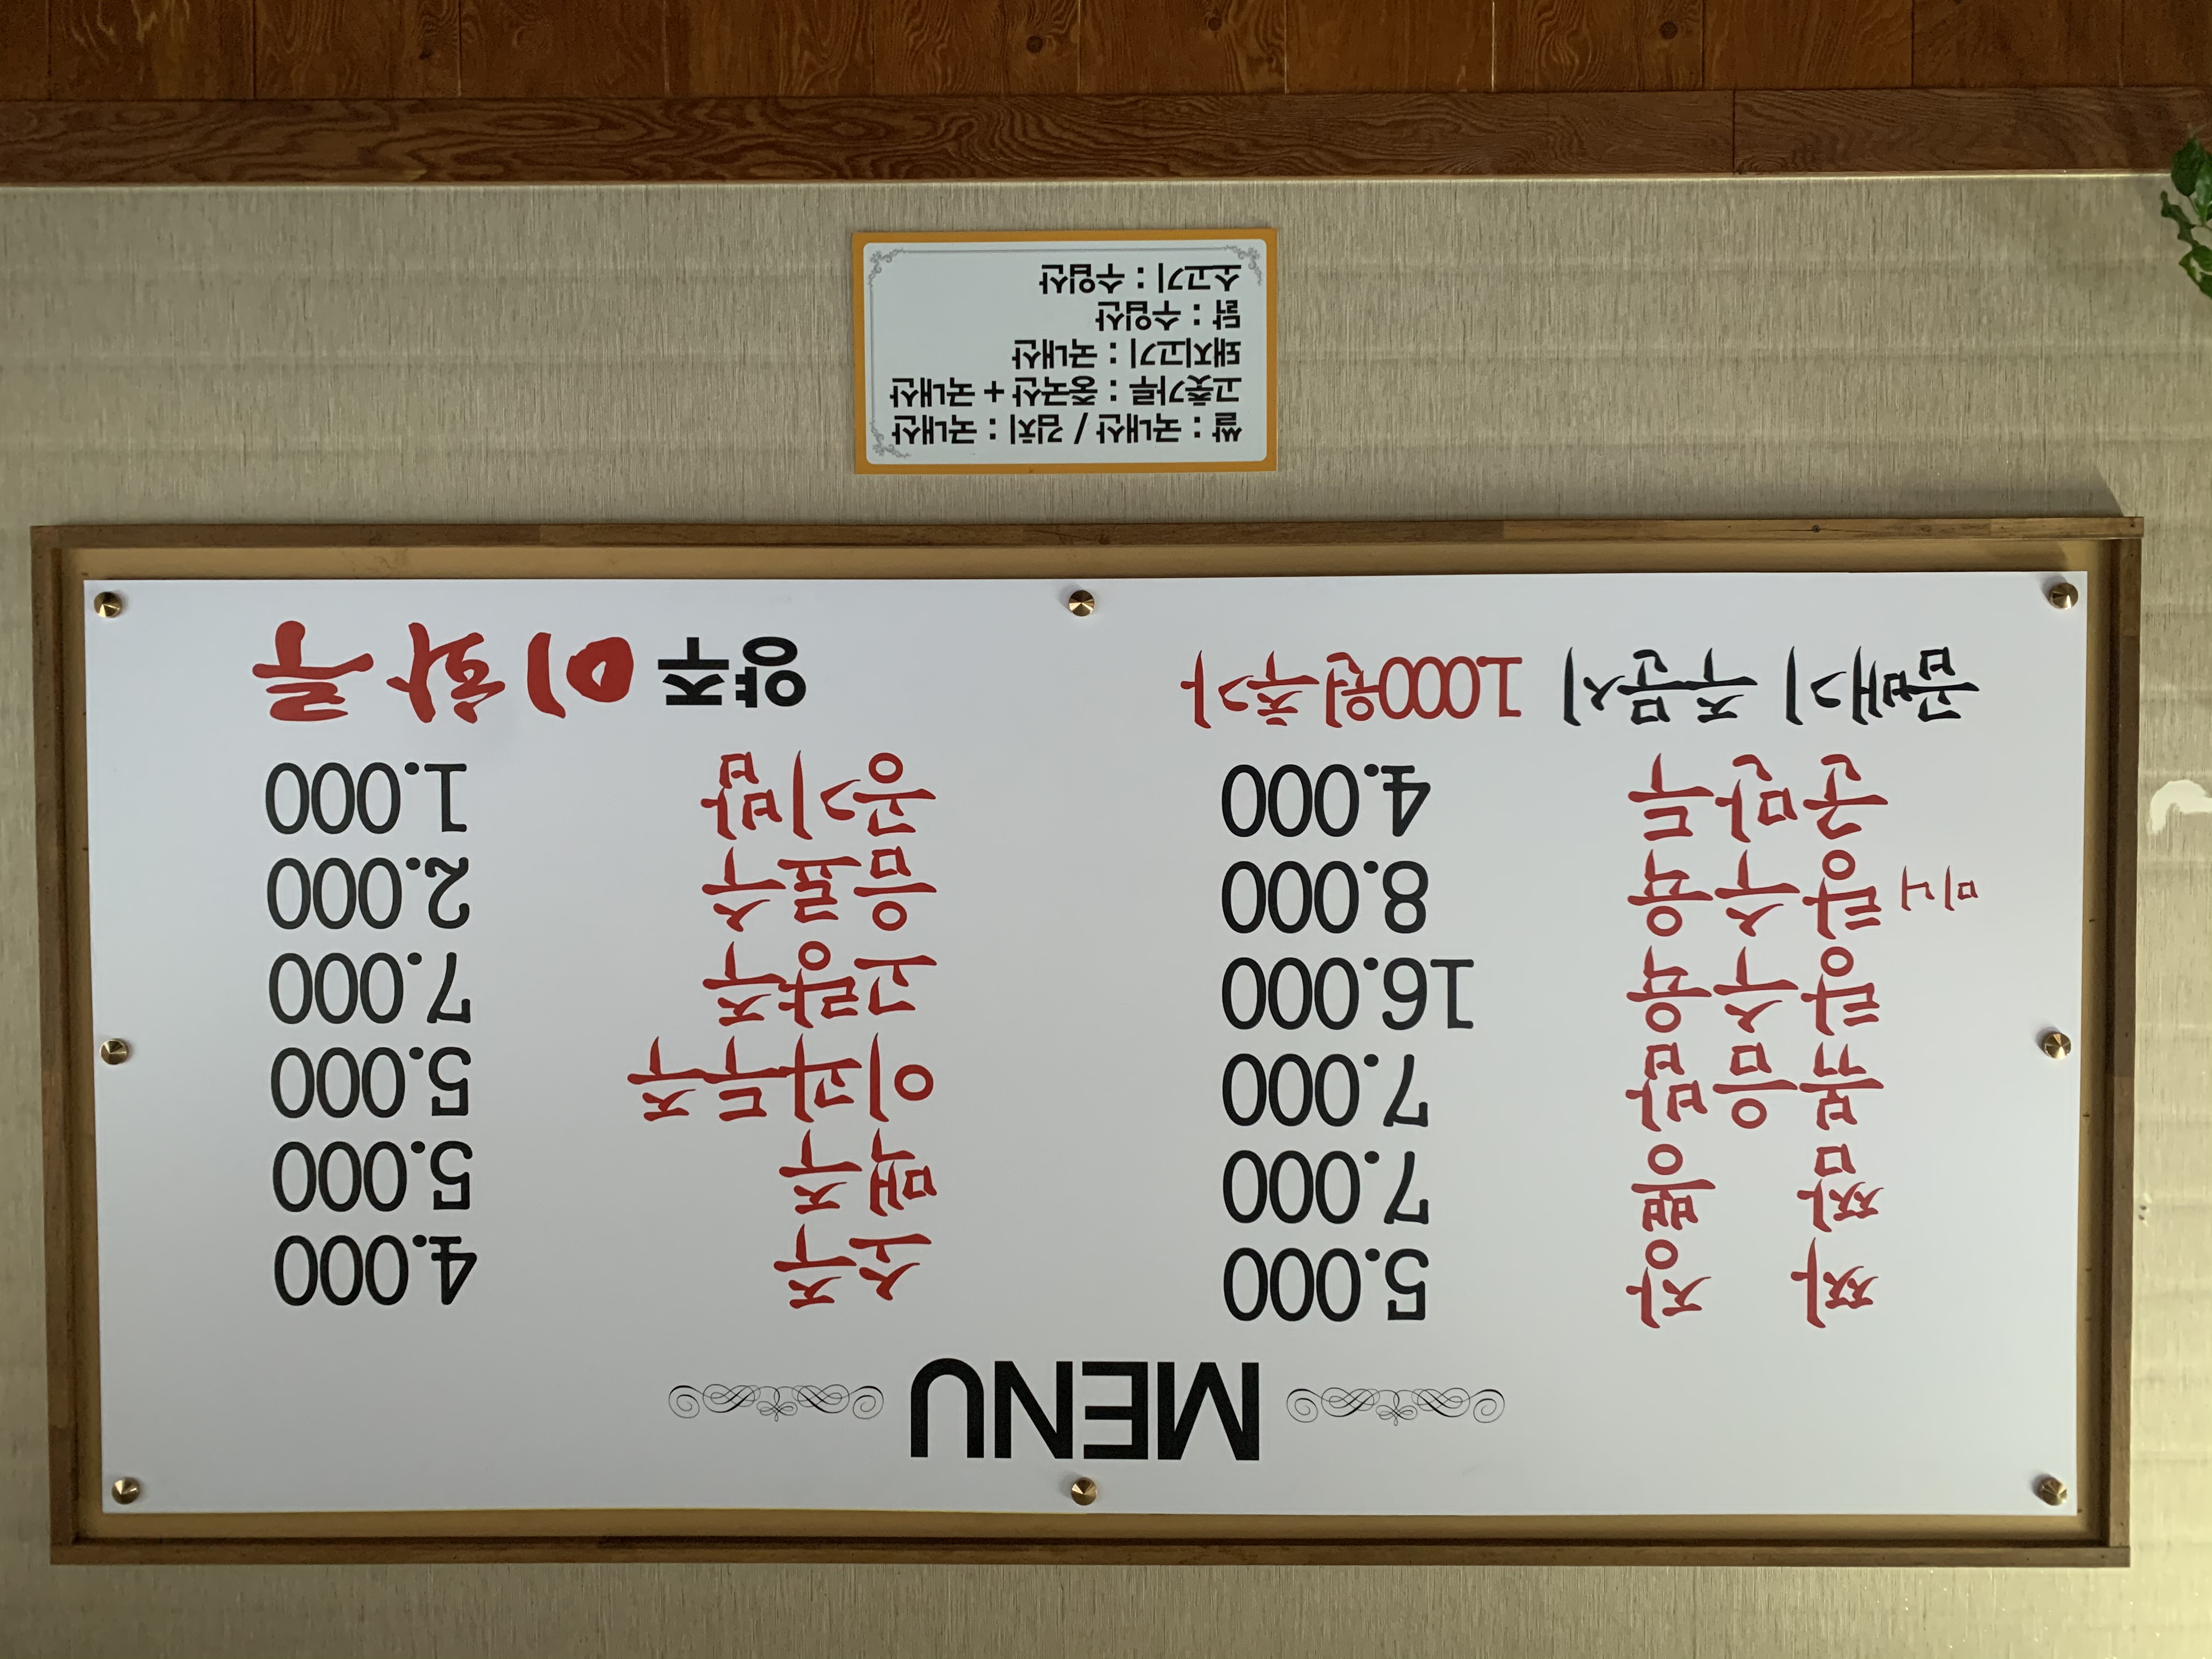 MENU
짜 장 5.000
짬 뽕 7.000
볶 음 밥 7.000
탕 수 육 16.000
미니 탕 수 육 8.000
군 만 두 4.000
곱배기 주문시 1.000원추가
소 주 4.000
맥 주 5.000
이과두주 5.000
고 량 주 7.000
음 료 수 2.000
공 기 밥 1.000
양주 이화루
쌀 : 국내산 / 김치 : 국내산
고춧가루 : 중국산 + 국내산
돼지고기 : 국내산
닭 : 수입산
소고기 : 수입산